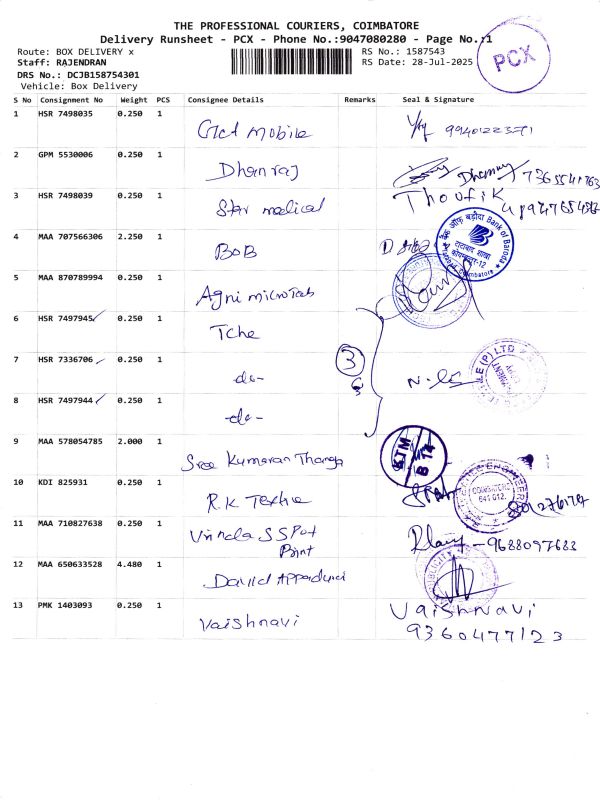 THE PROFESSIONAL COURIERS, COIMBATORE
Delivery Runsheet - PCX - Phone No.:9047080280 - Page No.:1
Route: BOX DELIVERY x
RS No.: 1587543
Staff: RAJENDRAN
RS Date: 28-Jul-2025
PCX
DRS No.: DCJB158754301
Vehicle: Box Delivery
S No Consignment No Weight PCS Consignee Details Remarks Seal & Signature
1 HSR 7498035 0.250 1 Mobile
2 GPM 5530006 0.250 1 Dhanraj
3 HSR 7498039 0.250 1 Star medical Thoufik
4 MAA 707566306 2.250 1 BOB Bank of Baroda
5 MAA 870789994 0.250 1 Agni microtab
6 HSR 7497945 0.250 1 Tche
7 HSR 7336706 0.250 1 -do-
3
8 HSR 7497944 0.250 1 -do-
9 MAA 578054785 2.000 1 Sree Kumaran Thanga KTM B 14
10 KDI 825931 0.250 1 R.K Textile
11 MAA 710827638 0.250 1 Print 9688097683
12 MAA 650633528 4.480 1 David Appadurai
13 PMK 1403093 0.250 1 Vaishnavi Vaishnavi
9360477123